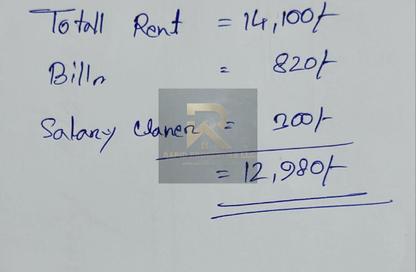 Totall Rent = 14,100/-
Bills = 820/-
Salary claner = 300/-
= 12,980/-